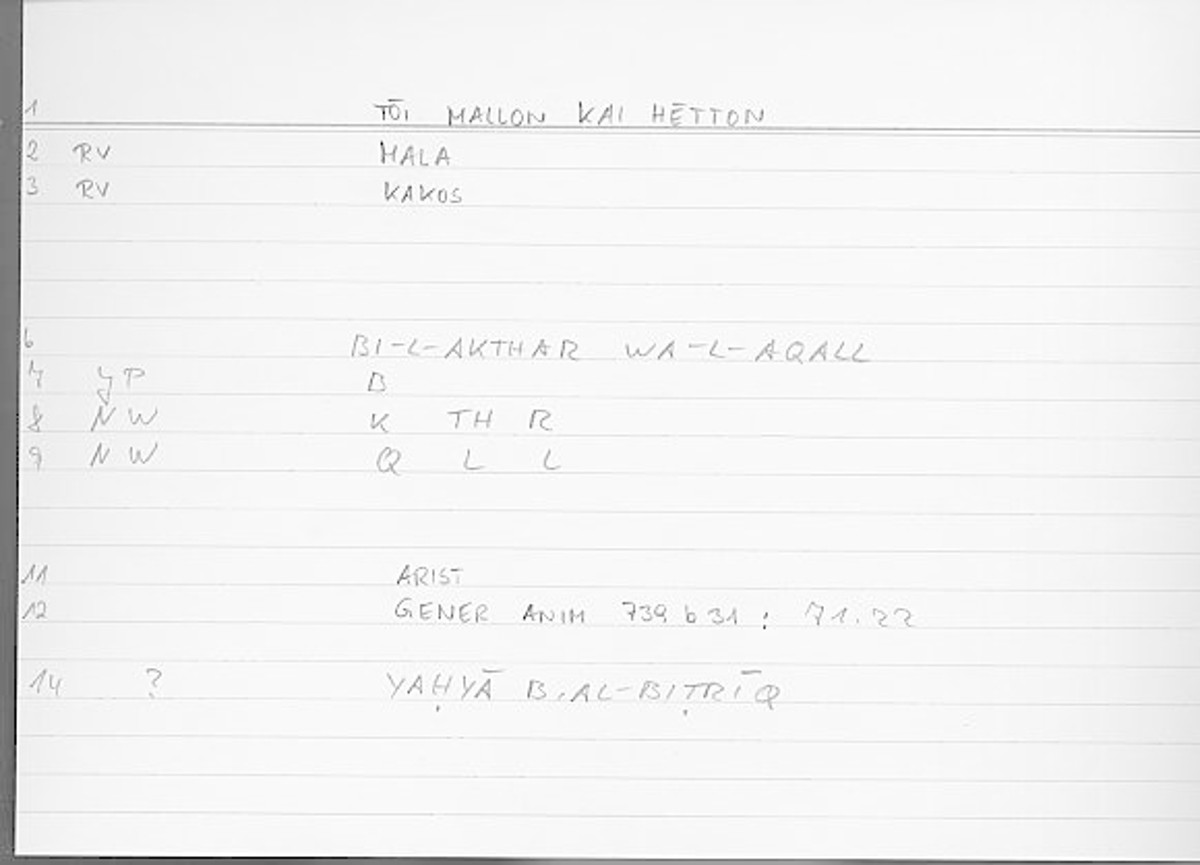 1 TŌI MALLON KAI HĒTTON
2 RV MALA
3 RV KAKOS
6 BI-L-AKTHAR WA-L-AQALL
7 YP B
8 NW K TH R
9 NW Q L L
11 ARIST
12 GENER ANIM 739 b 31 : 71.22
14 ? YAḤYĀ B.AL-BIṬRĪQ